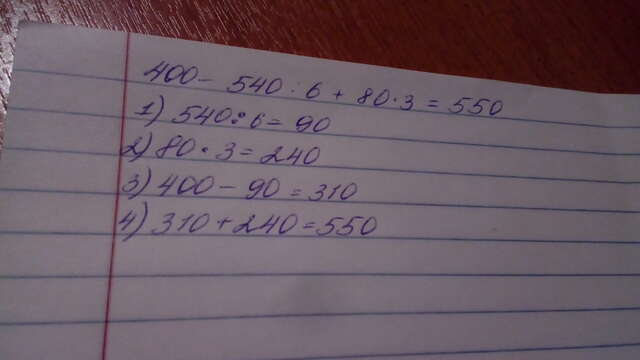 400 - 540 : 6 + 80 · 3 = 550
1) 540 : 6 = 90
2) 80 · 3 = 240
3) 400 - 90 = 310
4) 310 + 240 = 550